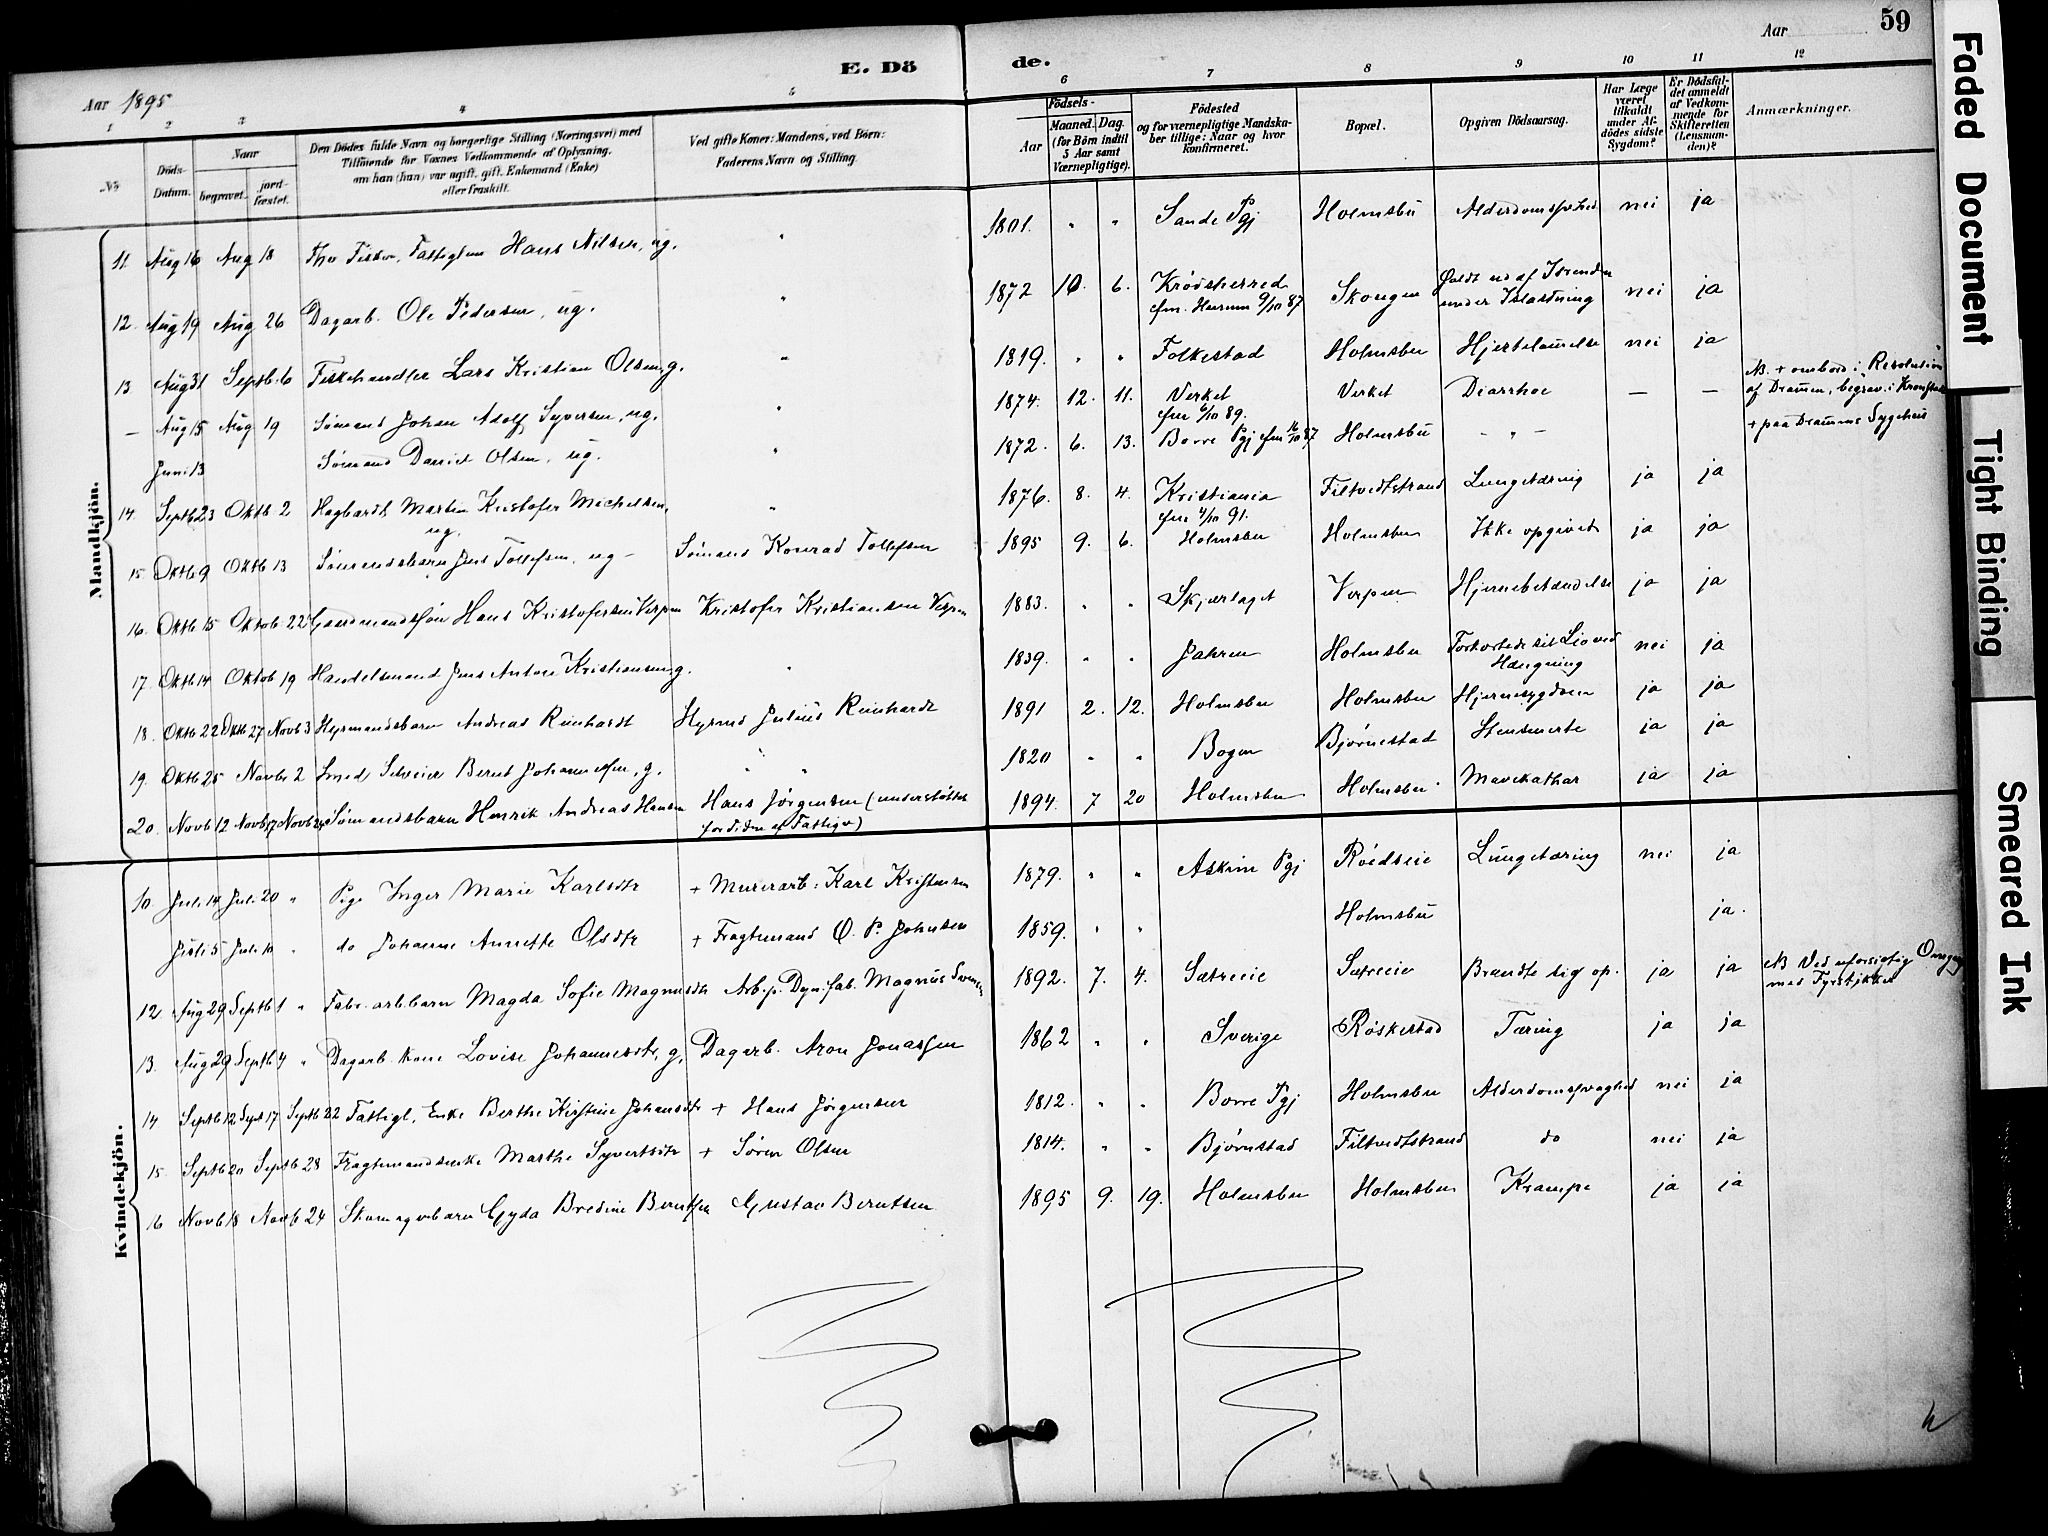 59
E. Dö de.
Aar 1895
Aar
1 2 3 4 5 6 7 8 9 10 11 12
No
Döds-Datum.
Naar
begravet. jord-fæstet.
Den Dödes fulde Navn og borgerlige Stilling (Næringsvei) med
Tilföiende for Voxnes Vedkommende af Oplysning,
om han (hun) var ugift, gift, Enkemand (Enke)
eller fraskilt.
Ved gifte Koner: Mandens, ved Börn:
Faderens Navn og Stilling.
Födsels-
Aar
Maaned. Dag.
(for Börn indtil
5 Aar samt
Værnepligtige).
Födested
og for værnepligtige Mandska-
ber tillige: Naar og hvor
konfirmeret.
Bopæl.
Opgiven Dödsaarsag.
Har Læge
været
tilkaldt
under Af-
dödes sidste
Sygdom?
Er Dödsfal-
det anmeldt
af Vedkom-
mende for
Skifteretten
(Lensman-
den)?
Anmærkninger.
Mandkjön.
11. Aug 16 Aug 18 Fhv Fisker, Fattiglem Hans Nilsen, ug. " 1801. " " Sande Pgj Holmsbu Alderdomssvhed nei ja
12. Aug 19 Aug 26 Dagarb. Ole Pedersen, ug. " 1872 10 6. Krødsherred Skougen Faldt ud af
cfm. Hurum 9/10 87 under nei ja
13 Aug 31 Septb. 6 Fiskehandler Lars Kristian Olsen, g. " 1819. " " Folkestad Holmsbu Hjertelamelse nei ja
– Aug 15 Aug 19 Sømand Johan Adolf Syversen, ug. " 1874. 12. 11. Verket Verket Diarrhoe – – NB. + ombord i "Revolution"
cfm 6/10 89. af Drammen, begrav. i
Juni 13 Sømand Daniel Olsen, ug. " 1872. 6. 13. Borre Pgj cfm 87 Holmsbu – " – + paa Drammens Sygehus
14. Septb 23 Oktb 2 Hagbarth Martin Kristofer Michelsen, " 1876. 8. 4. Kristiania Filtvedtstrand Lungetæring ja ja
ug. cfm 4/10 91.
15. Oktb 9 Oktb 13 Sømandsbarn Jens Tollefsen, ug – Sømand Konrad Tollefsen 1895 9. 6. Holmsbu Holmsbu Ikke opgivet ja ja
16. Oktb 15 Oktob. 22 Gaardmandssøn Hans Kristofersen Verpen Kristofer Kristiansen Verpen 1883. " " Skjærlaget Verpen Hjernebetændelse ja ja
17. Oktb 14 Oktob 19 Handelsmand Jens Anton Kristiansen g. " 1839. " " Jahren Holmsbu Forkortede sit Liv ved nei ja
Hængning
18. Oktb 22 Oktb 27 Novb 3 Hyrmandsbarn Andreas Reinhardt Hyrmd Julius Reinhardt 1891 2. 12. Holmsbu Holmsbu Hjernesygdom ja ja
19. Oktb 25 Novbr 2 Smed Selveier Bernt Johannesen, g. " " 1820 " " Bogen Bjørnestad Stensmerte ja ja
20. Novb 12 Novb 17 Novb 24 Sømandsbarn Henrik Andreas Hansen Hans Jørgensen (understøttet 1894. 7 20 Holmsbu Holmsbu Mavekathar ja ja
for Tiden af Fattigv)
Kvindekjön.
10. Juli 14 Juli 20 " Pige Inger Marie Karlsdtr + Murerarb. Karl Kristensen 1879. " " Askim Pgj Rødseie Lungetæring nei ja
Juli 5 Juli 10 " do Johanne Annette Olsdtr + Fragtemand O. P. Johnsen 1859. " " Holmsbu ja.
12 Aug 29 Septb 1 " Fabr. arb. barn Magda Sofie Magnusdtr Arb. p. Dyn. fab. Magnus 1892. 7. 4. Sætreeie Sætreeie Brændte sig op. ja ja NB Ved uforsigtig Omgang
med Fyrstikker
13. Aug 29 Septb 4 " Dagarb. kone Lovise Johannesdtr, g. Dagarb. Aron Jonassen 1862 " " Sverige Røskestad Tæring ja ja
14 Septb 12 Sept 17 Septb 22 Fattigl. Enke Berthe Kirstine Johansdtr + Hans Jørgensen 1812. " " Borre Pgj Holmsbu Alderdomssvaghed nei ja
15. Septb 20 Septb 28 Fragtemandsenke Marthe Syvertsdtr + Søren Olsen 1814. " " Bjørnstad Filtvedtstrand do nei ja
16 Novb 18 Novb 24 Skomagerbarn Gyda Bredine Berntsen Gustav Berntsen 1895 9. 19. Holmsbu Holmsbu Krampe ja ja
Faded Document
Tight Binding
Smeared Ink